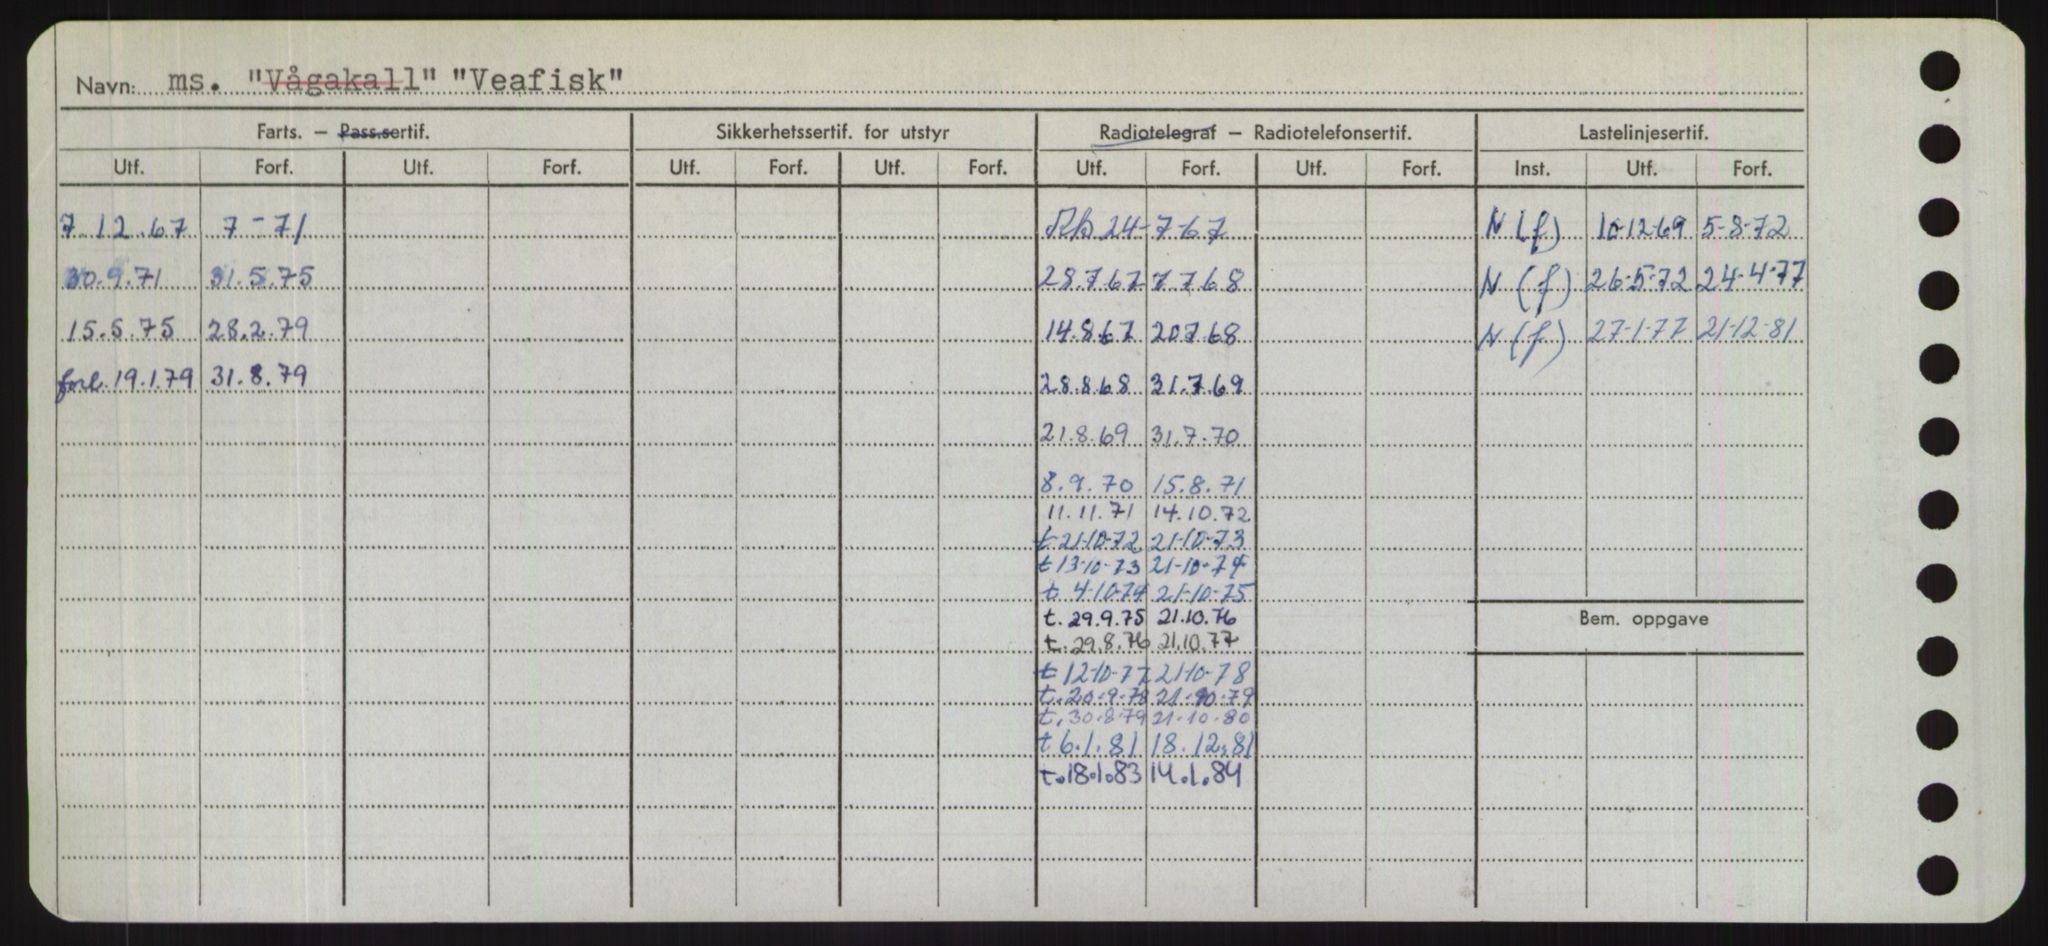 Navn: ms. "Vågakall" "Veafisk"
Farts. – Pass.sertif. Sikkerhetssertif. for utstyr Radiotelegraf – Radiotelefonsertif. Lastelinjesertif.
Utf. Forf. Utf. Forf. Utf. Forf. Utf. Forf. Utf. Forf. Utf. Forf. Inst. Utf. Forf.
7.12.67 7-71 24-7-67 N (f) 10-12-69 5-8-72
30.9.71 31.5.75 28.7.67 7.7.68 N (f) 26-5-72 24-4-77
15.5.75 28.2.79 14.8.67 20.7.68 N (f) 27-1-77 21-12-81
forl. 19.1.79 31.8.79 28.8.68 31.7.69
21.8.69 31.7.70
8.9.70 15.8.71
11.11.71 14.10.72
t 21-10-72 21-10-73
t 13-10-73 21-10-74
t 4-10-74 21-10-75
t. 29.9.75 21.10.76
Bem. oppgave
t. 29.8.76 21.10.77
t 12-10-77 21-10-78
t. 20-9-78 21-10-79
t. 30-8-79 21-10-80
t 6.1.81 18.12.81
t. 18.1.83 14.1.84